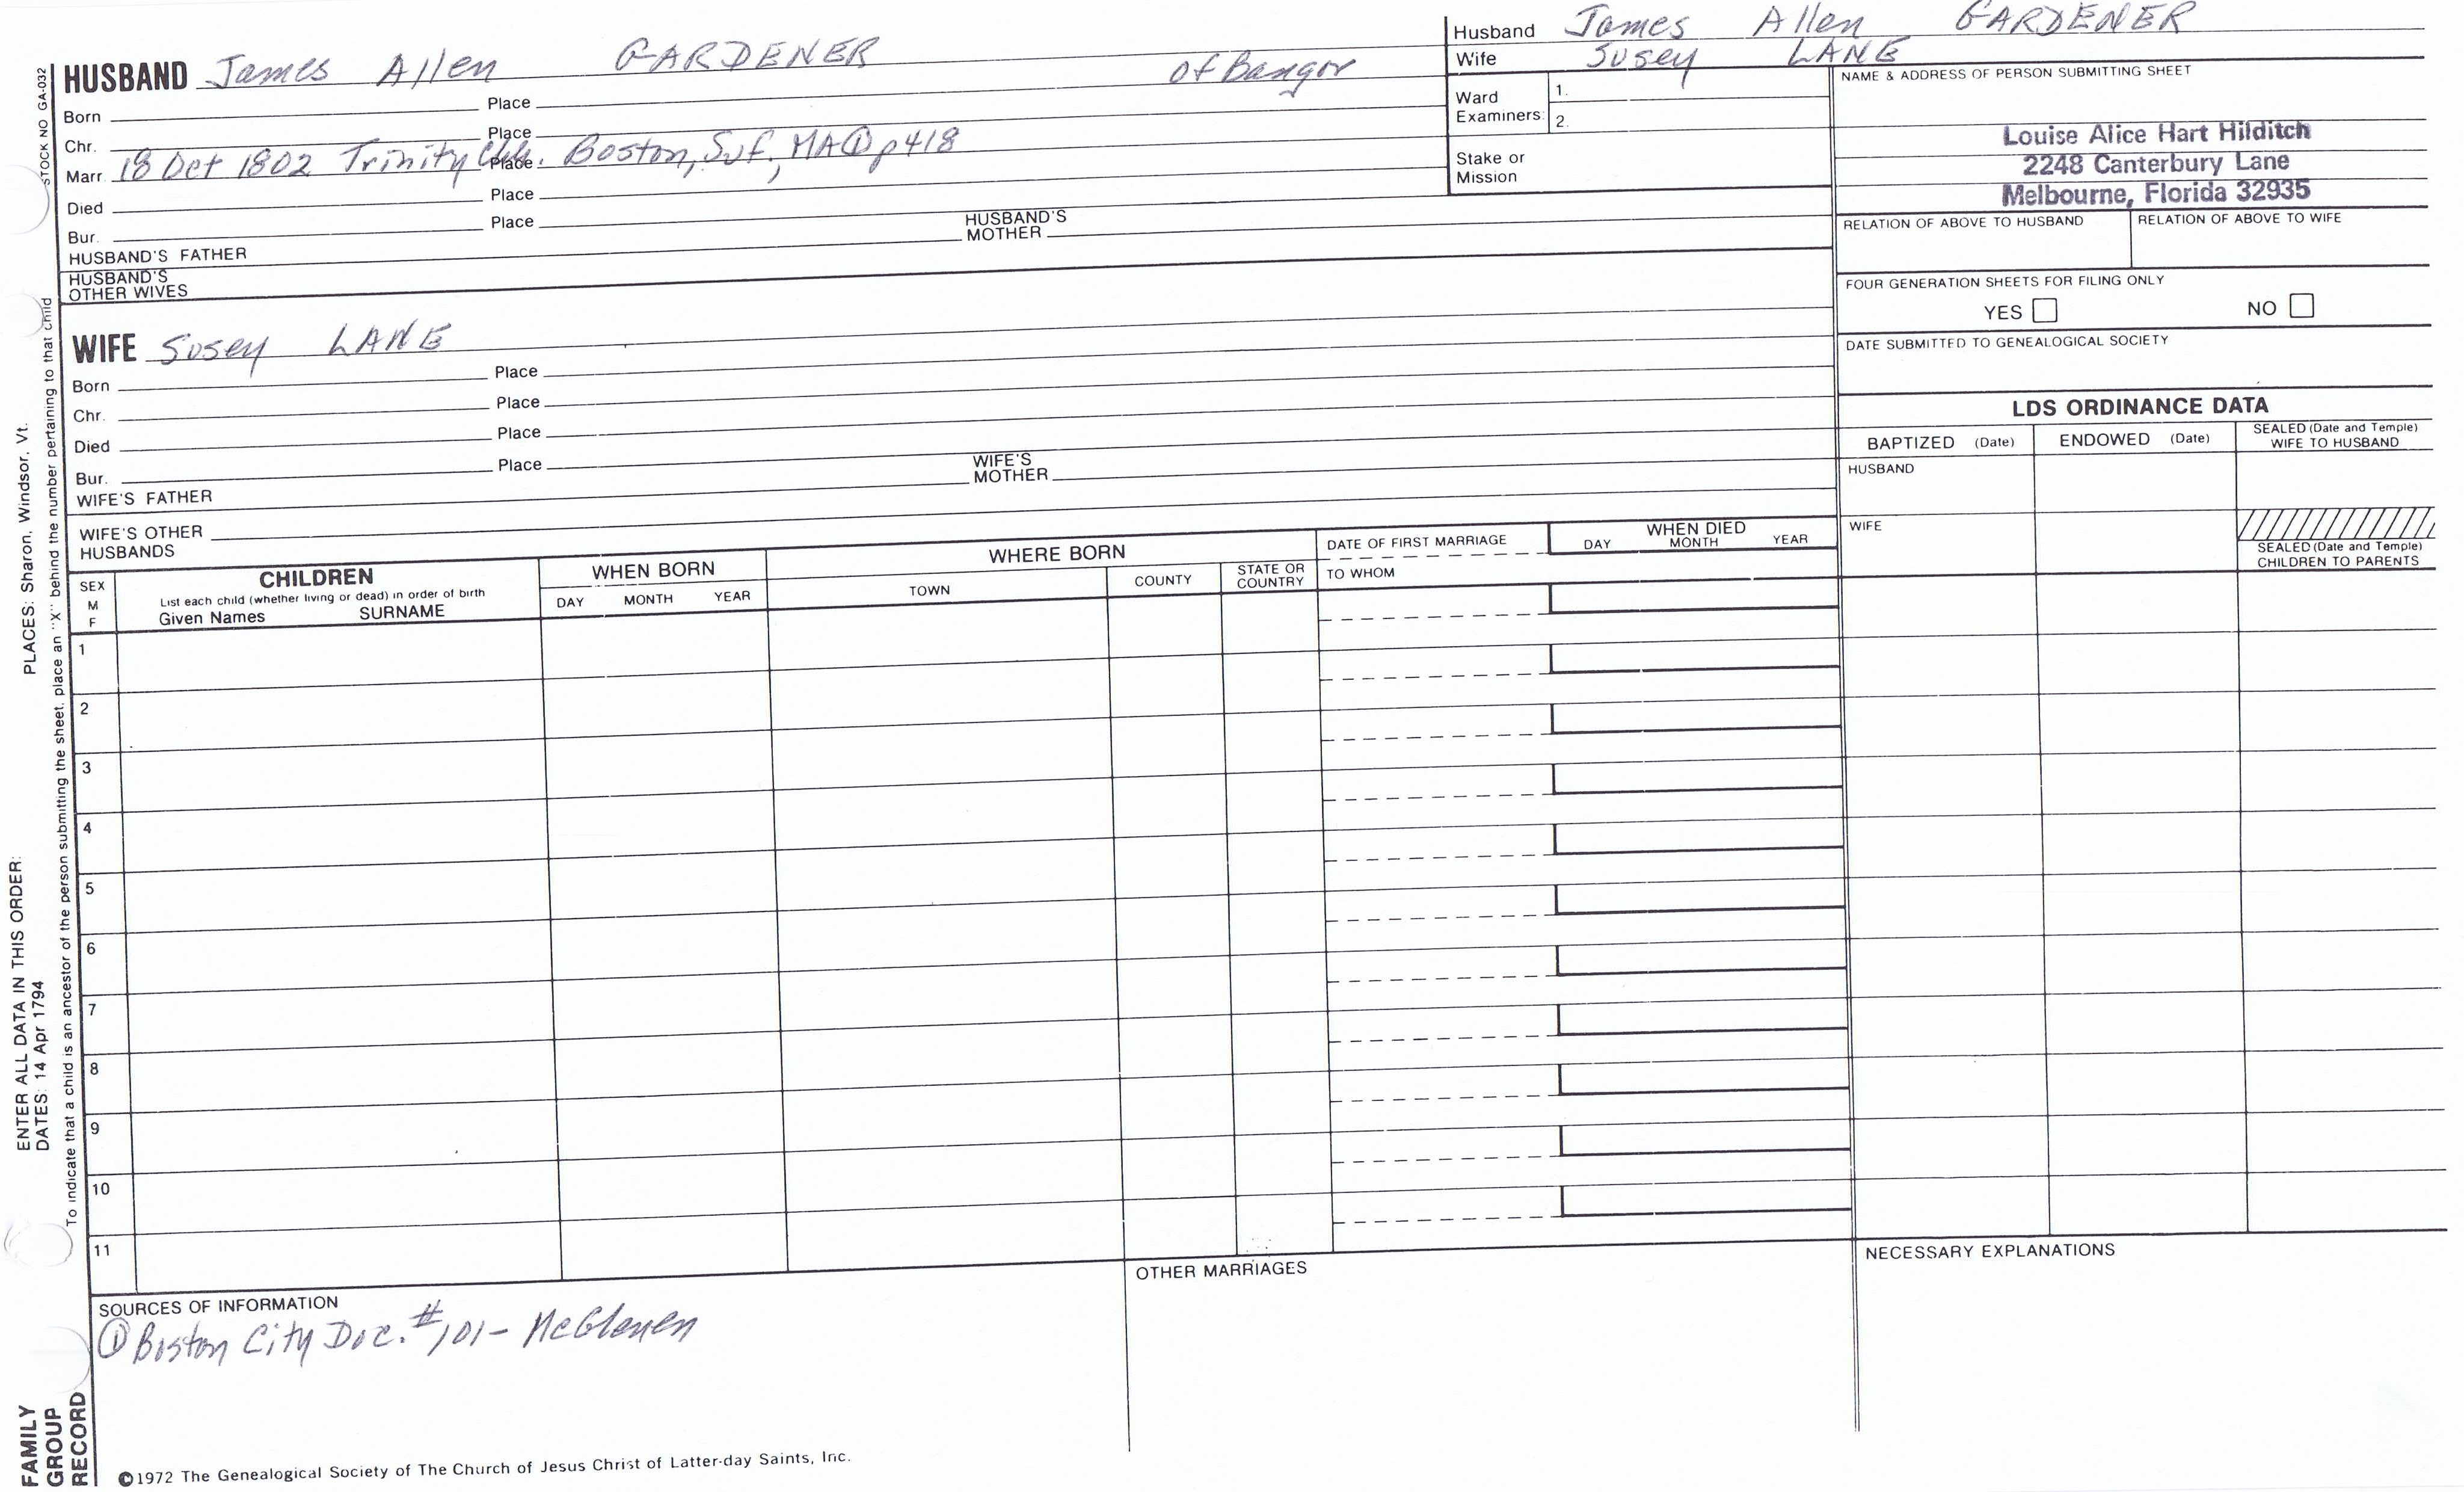 Husband James Allen GARDENER
Wife Susey LANE
HUSBAND James Allen GARDENER of Bangor
Born Place
Chr. Place
Marr. 18 Oct 1802 Trinity Chh. Place Boston, Suf, MA ① p418
Died Place
Bur. Place
HUSBAND'S FATHER HUSBAND'S MOTHER
HUSBAND'S OTHER WIVES
Ward Examiners: 1.
2.
Stake or Mission
NAME & ADDRESS OF PERSON SUBMITTING SHEET
Louise Alice Hart Hilditch
2248 Canterbury Lane
Melbourne, Florida 32935
RELATION OF ABOVE TO HUSBAND RELATION OF ABOVE TO WIFE
FOUR GENERATION SHEETS FOR FILING ONLY
YES NO
DATE SUBMITTED TO GENEALOGICAL SOCIETY
WIFE Susey LANE
Born Place
Chr. Place
Died Place
Bur. Place
WIFE'S FATHER WIFE'S MOTHER
WIFE'S OTHER HUSBANDS
LDS ORDINANCE DATA
BAPTIZED (Date) ENDOWED (Date) SEALED (Date and Temple) WIFE TO HUSBAND
HUSBAND
WIFE
SEALED (Date and Temple) CHILDREN TO PARENTS
SEX M F
CHILDREN
List each child (whether living or dead) in order of birth
Given Names SURNAME
WHEN BORN
DAY MONTH YEAR
WHERE BORN
TOWN COUNTY STATE OR COUNTRY
DATE OF FIRST MARRIAGE
TO WHOM
WHEN DIED
DAY MONTH YEAR
1
2
3
4
5
6
7
8
9
10
11
SOURCES OF INFORMATION
① Boston City Doc. #101 - McGlenen
OTHER MARRIAGES
NECESSARY EXPLANATIONS
©1972 The Genealogical Society of The Church of Jesus Christ of Latter-day Saints, Inc.
STOCK NO GA-032
To indicate that a child is an ancestor of the person submitting the sheet, place an "X" behind the number pertaining to that child
ENTER ALL DATA IN THIS ORDER:
DATES: 14 Apr 1794
PLACES: Sharon, Windsor, Vt.
FAMILY
GROUP
RECORD